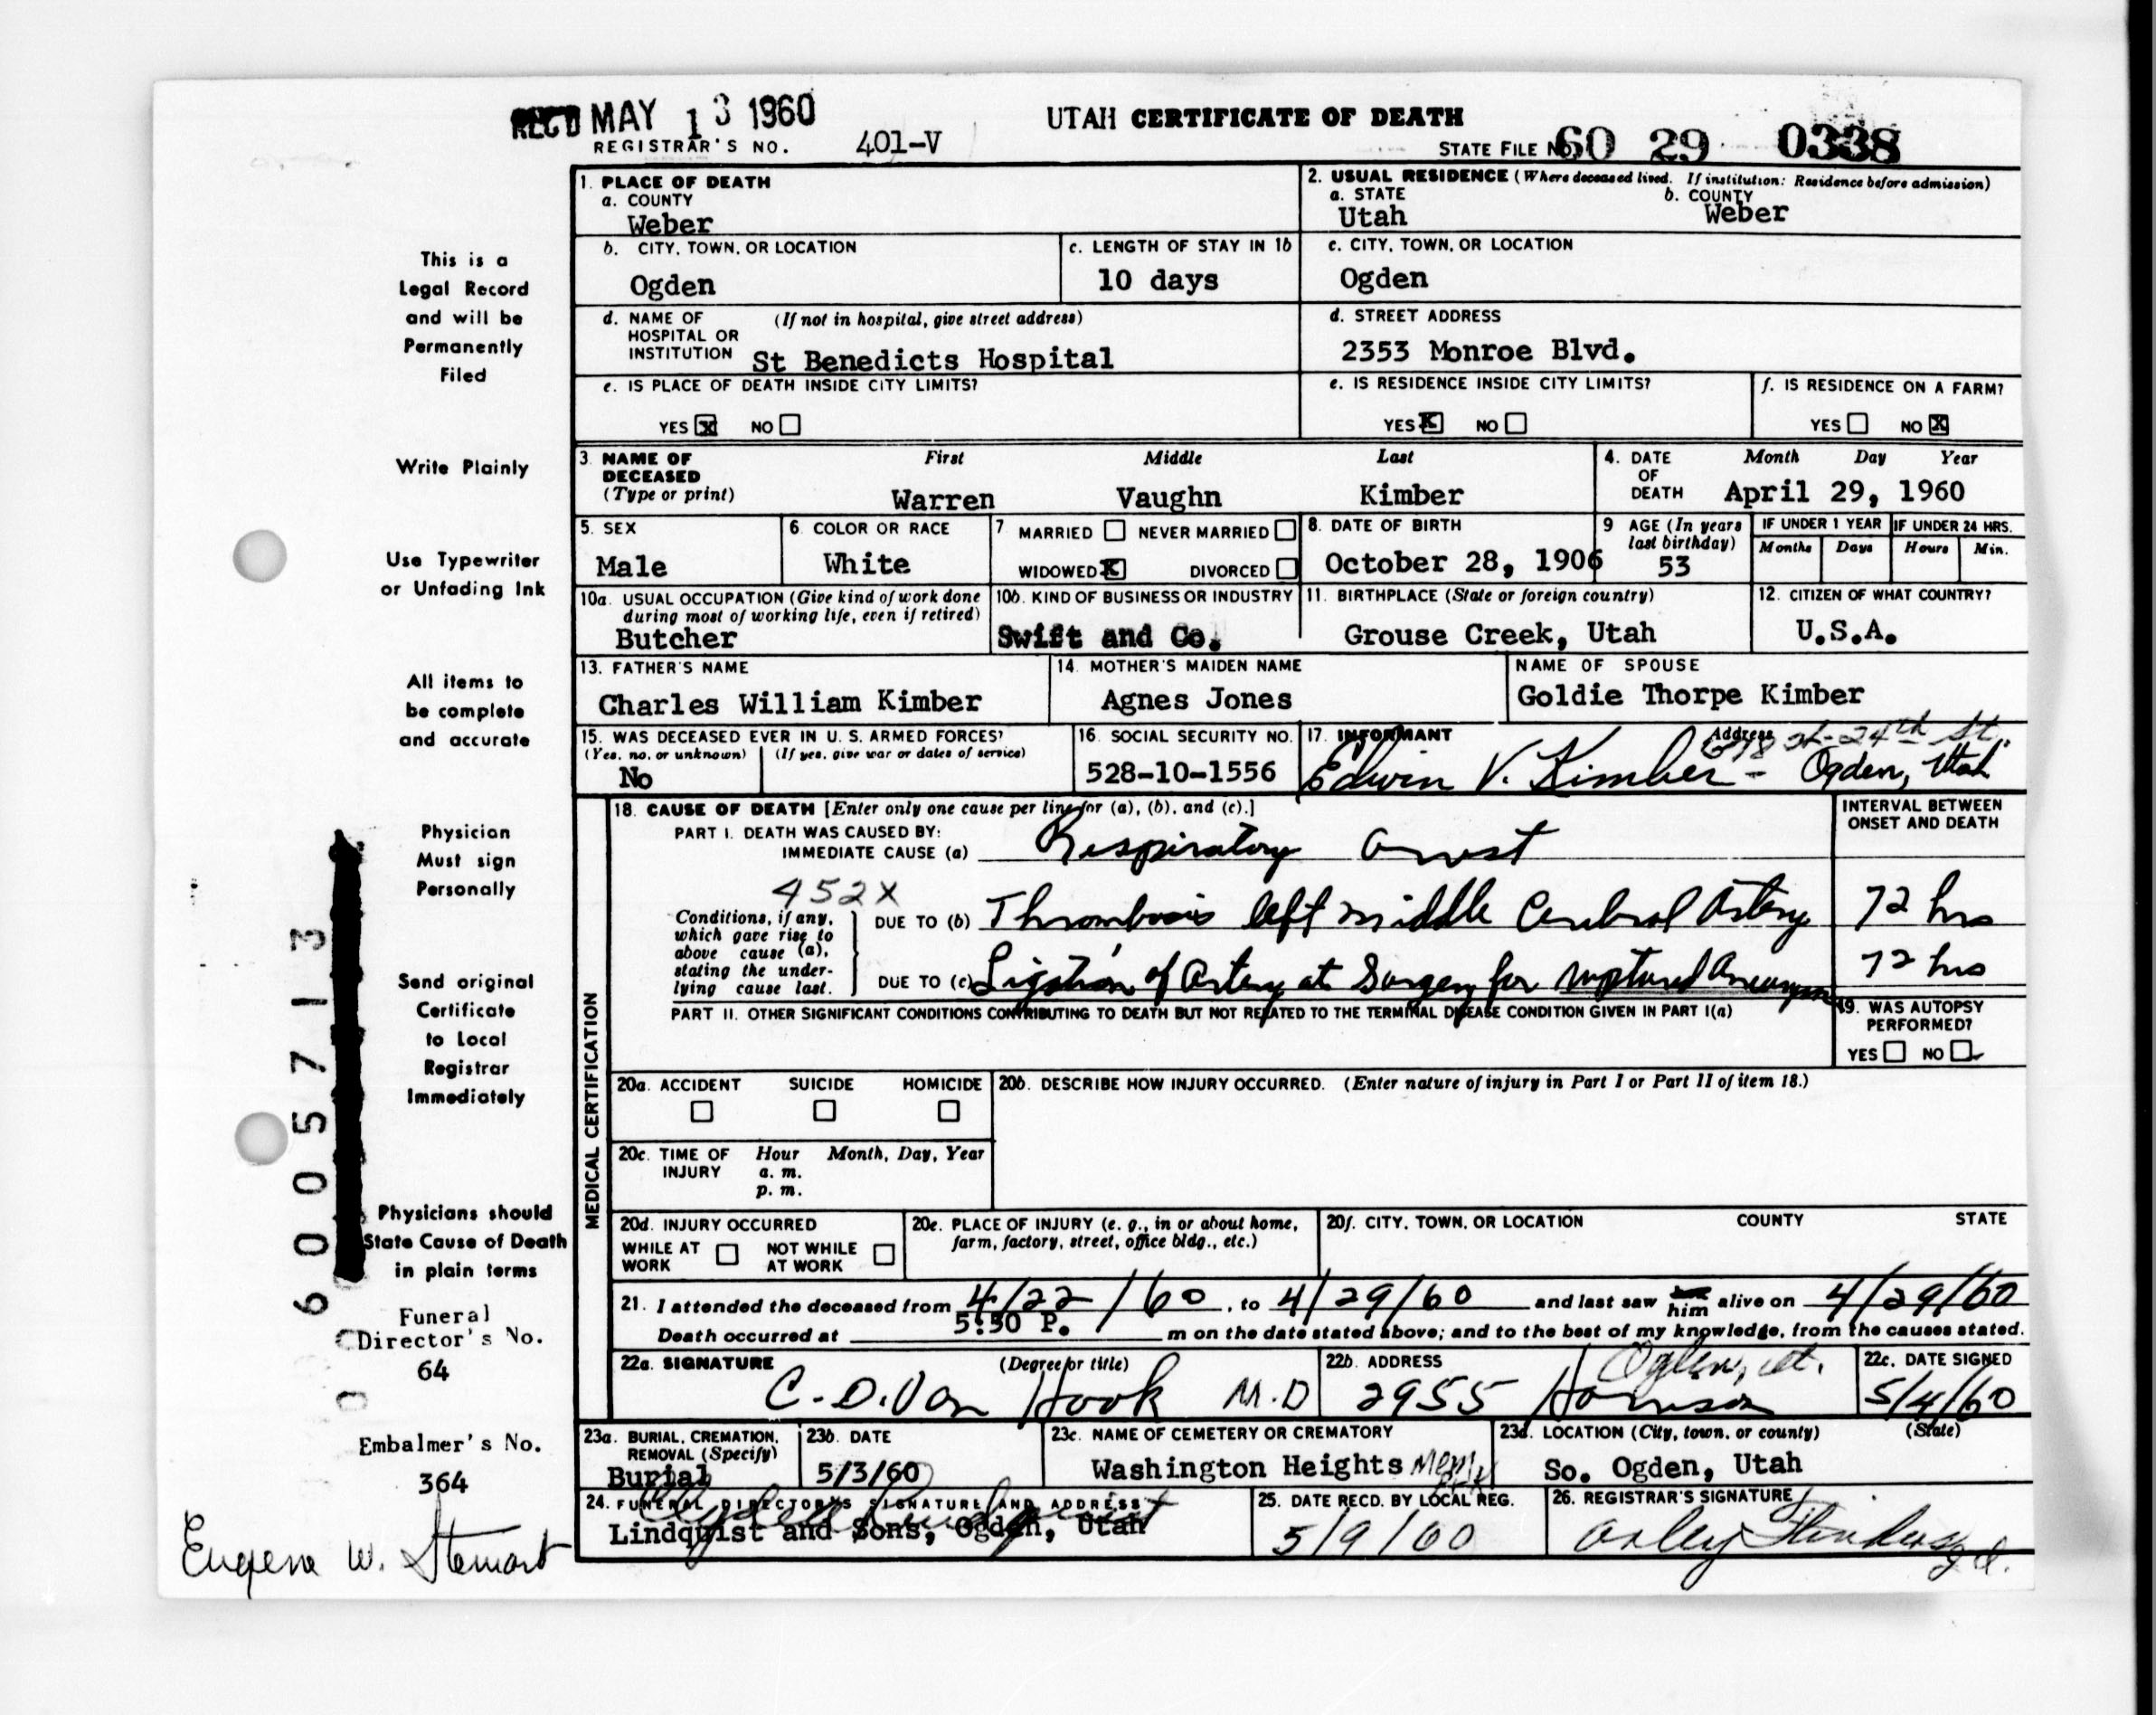 REC'D MAY 13 1960
UTAH CERTIFICATE OF DEATH
REGISTRAR'S NO. 401-V
STATE FILE NO. 60 29 0338
This is a
Legal Record
and will be
Permanently
Filed
Write Plainly
Use Typewriter
or Unfading Ink
All items to
be complete
and accurate
Physician
Must sign
Personally
Send original
Certificate
to Local
Registrar
Immediately
Physicians should
State Cause of Death
in plain terms
Funeral
Director's No.
64
Embalmer's No.
364
Eugene W. Stewart
6005713
1. PLACE OF DEATH
a. COUNTY
Weber
2. USUAL RESIDENCE (Where deceased lived. If institution: Residence before admission)
a. STATE b. COUNTY
Utah Weber
b. CITY, TOWN, OR LOCATION
Ogden
c. LENGTH OF STAY IN 1b
10 days
c. CITY, TOWN, OR LOCATION
Ogden
d. NAME OF (If not in hospital, give street address)
HOSPITAL OR
INSTITUTION St Benedicts Hospital
d. STREET ADDRESS
2353 Monroe Blvd.
e. IS PLACE OF DEATH INSIDE CITY LIMITS?
YES X NO
e. IS RESIDENCE INSIDE CITY LIMITS?
YES X NO
f. IS RESIDENCE ON A FARM?
YES NO X
3. NAME OF First Middle Last
DECEASED
(Type or print) Warren Vaughn Kimber
4. DATE Month Day Year
OF
DEATH April 29, 1960
5. SEX
Male
6. COLOR OR RACE
White
7 MARRIED NEVER MARRIED
WIDOWED X DIVORCED
8. DATE OF BIRTH
October 28, 1906
9 AGE (In years
last birthday)
53
IF UNDER 1 YEAR
Months Days
IF UNDER 24 HRS.
Hours Min.
10a. USUAL OCCUPATION (Give kind of work done
during most of working life, even if retired)
Butcher
10b. KIND OF BUSINESS OR INDUSTRY
Swift and Co.
11. BIRTHPLACE (State or foreign country)
Grouse Creek, Utah
12. CITIZEN OF WHAT COUNTRY?
U.S.A.
13. FATHER'S NAME
Charles William Kimber
14. MOTHER'S MAIDEN NAME
Agnes Jones
NAME OF SPOUSE
Goldie Thorpe Kimber
15. WAS DECEASED EVER IN U. S. ARMED FORCES?
(Yes, no, or unknown) (If yes, give war or dates of service)
No
16. SOCIAL SECURITY NO.
528-10-1556
17. INFORMANT Address
24th St.
Edwin V. Kimber - Ogden, Utah
MEDICAL CERTIFICATION
18. CAUSE OF DEATH [Enter only one cause per line for (a), (b), and (c).]
INTERVAL BETWEEN
ONSET AND DEATH
PART I. DEATH WAS CAUSED BY:
IMMEDIATE CAUSE (a) Respiratory arrest
452X
Conditions, if any,
which gave rise to
above cause (a),
stating the under-
lying cause last.
DUE TO (b) Thrombosis left middle Cerebral Artery 72 hrs
DUE TO (c) Ligation of Artery at Surgery for ruptured Aneurysm 72 hrs
PART II. OTHER SIGNIFICANT CONDITIONS CONTRIBUTING TO DEATH BUT NOT RELATED TO THE TERMINAL DISEASE CONDITION GIVEN IN PART I(a)
19. WAS AUTOPSY
PERFORMED?
YES NO
20a. ACCIDENT SUICIDE HOMICIDE
20b. DESCRIBE HOW INJURY OCCURRED. (Enter nature of injury in Part I or Part II of item 18.)
20c. TIME OF Hour Month, Day, Year
INJURY a. m.
p. m.
20d. INJURY OCCURRED
WHILE AT NOT WHILE
WORK AT WORK
20e. PLACE OF INJURY (e. g., in or about home,
farm, factory, street, office bldg., etc.)
20f. CITY, TOWN, OR LOCATION COUNTY STATE
21. I attended the deceased from 4/22/60, to 4/29/60 and last saw her him alive on 4/29/60
Death occurred at 5:50 P. m on the date stated above; and to the best of my knowledge, from the causes stated.
22a. SIGNATURE (Degree or title)
C. D. Van Hook M.D
22b. ADDRESS Ogden, Ut.
2955 Harrison
22c. DATE SIGNED
5/4/60
23a. BURIAL, CREMATION,
REMOVAL (Specify)
Burial
23b. DATE
5/3/60
23c. NAME OF CEMETERY OR CREMATORY
Washington Heights Mem. Pk
23d. LOCATION (City, town, or county) (State)
So. Ogden, Utah
24. FUNERAL DIRECTOR'S SIGNATURE AND ADDRESS
Lindquist and Sons, Ogden, Utah
25. DATE RECD. BY LOCAL REG.
5/9/60
26. REGISTRAR'S SIGNATURE